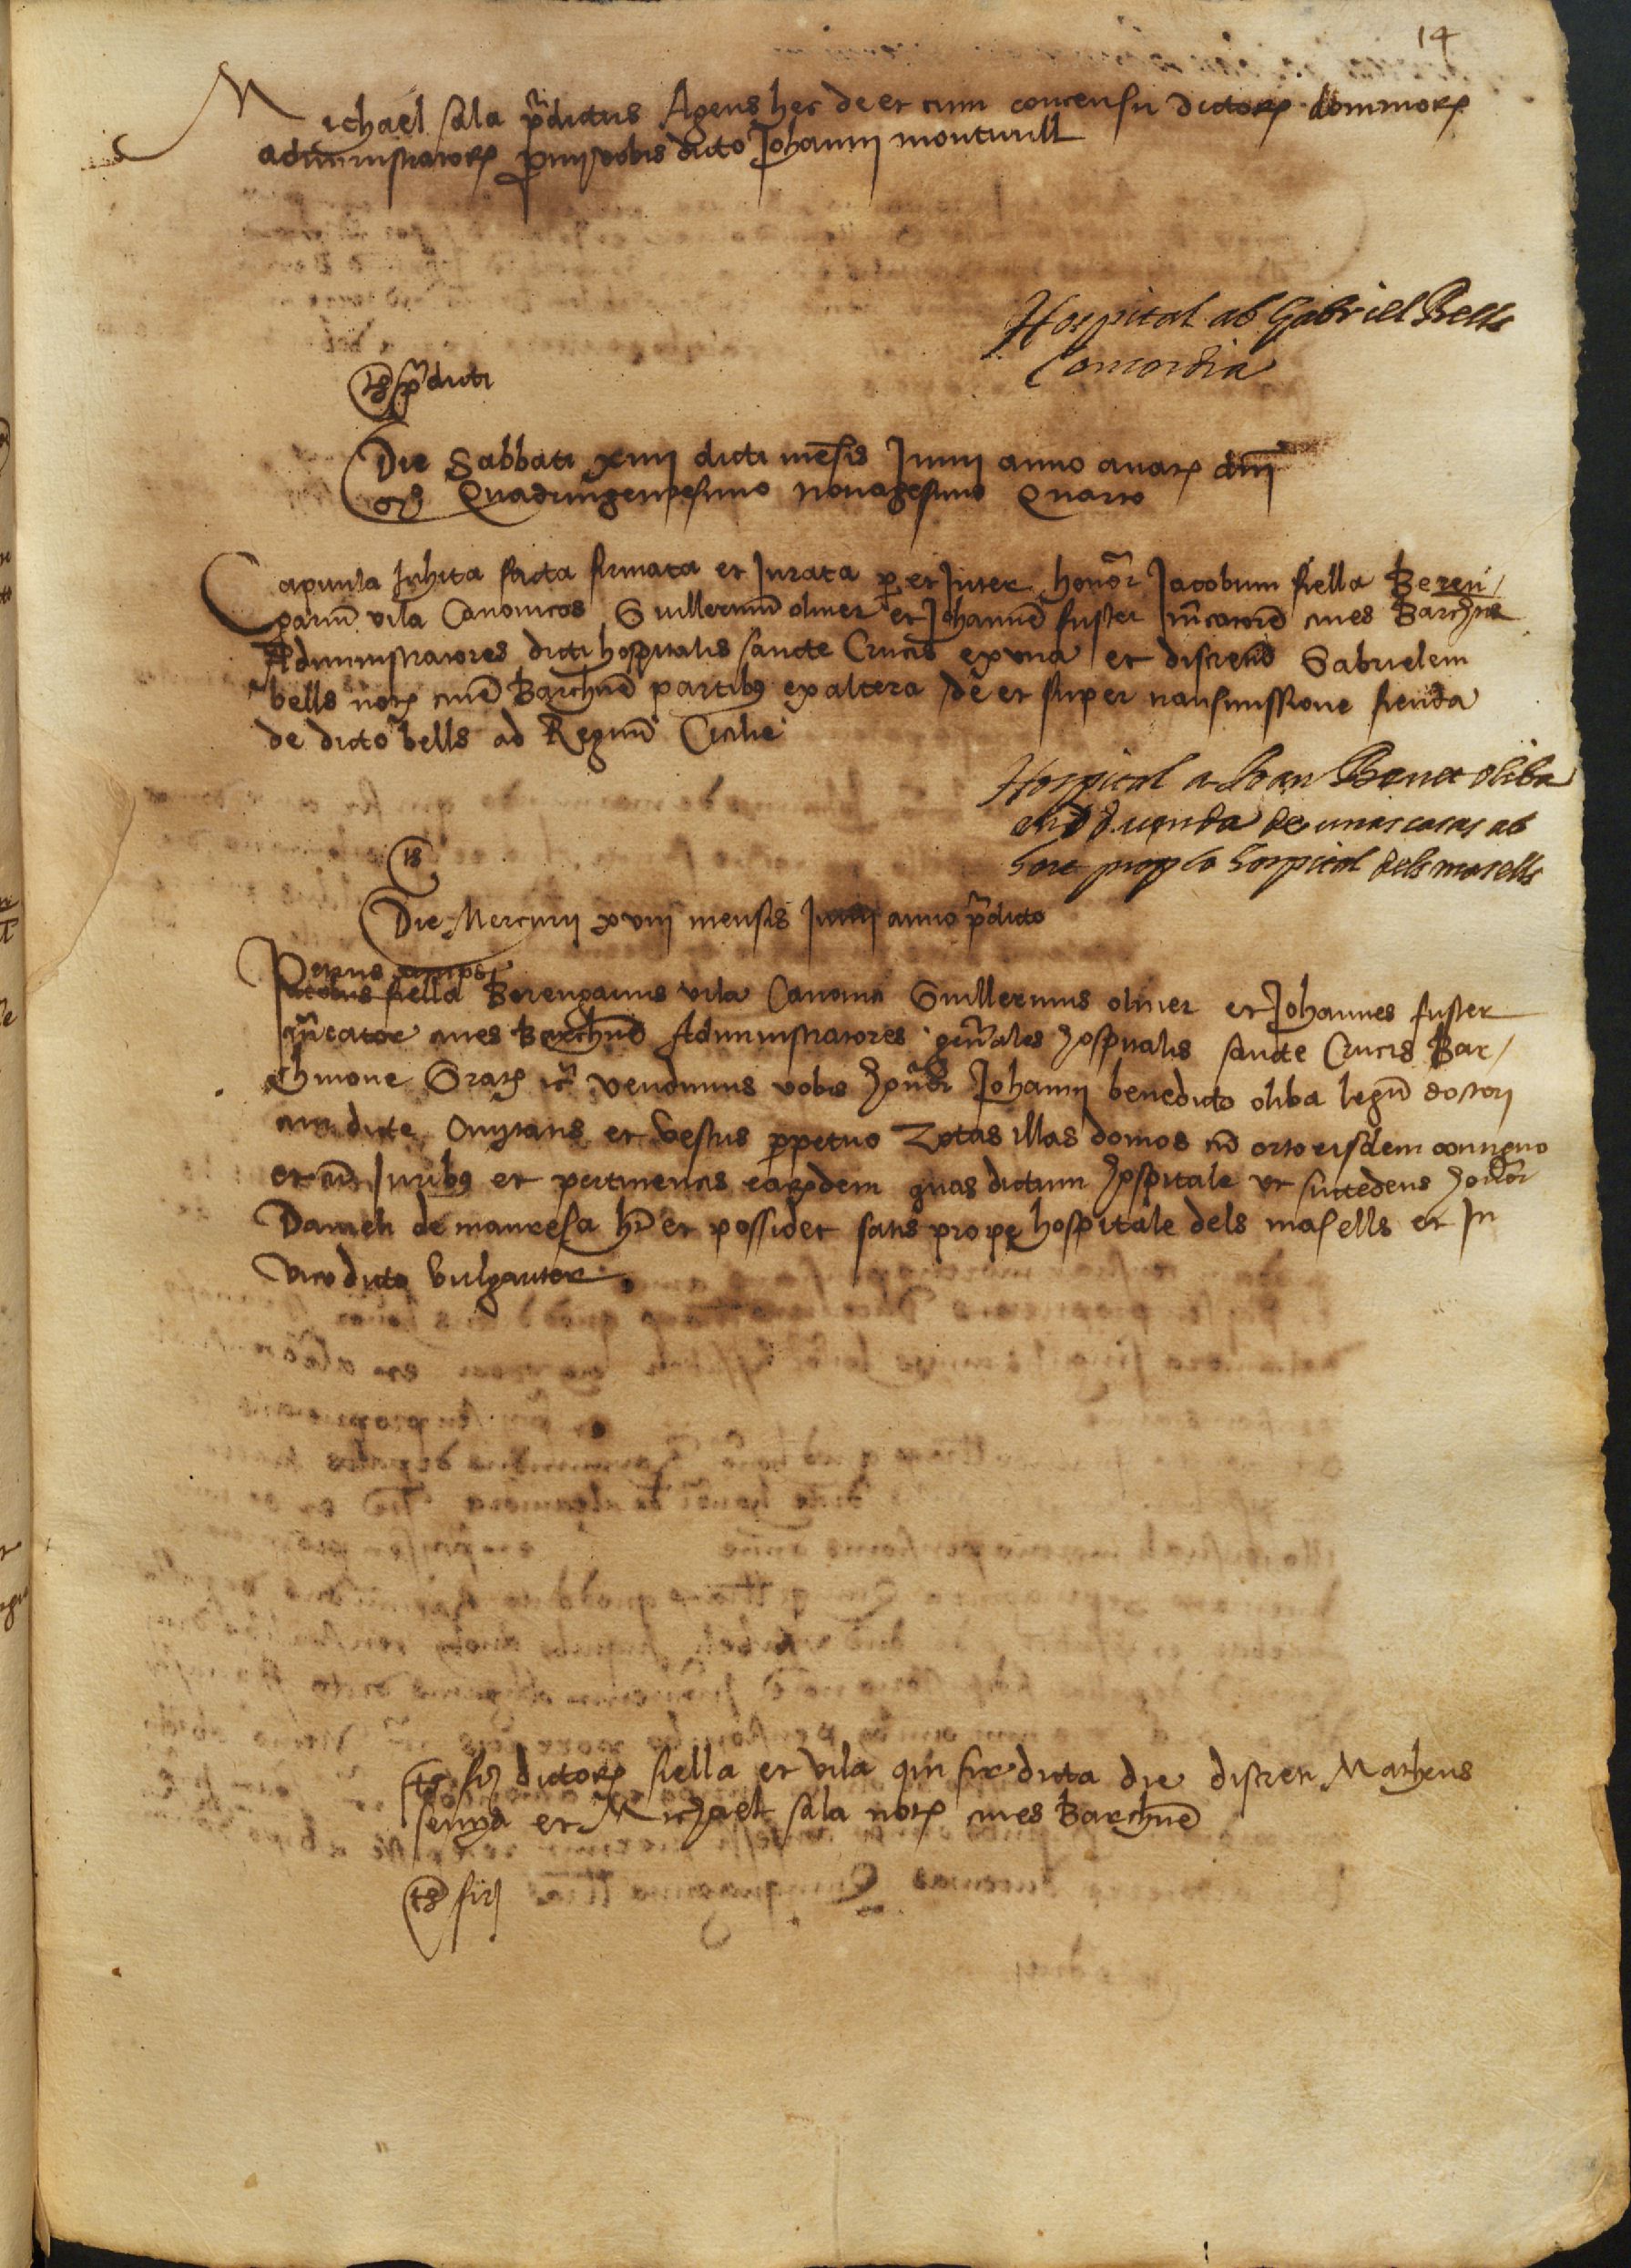 14
Michael sala p̃dictus Agens hec de et cum concensu dictoꝝ dominoꝝ
administratoꝝ vobis dicto Johanni monturull
Hospital ab Gabriel Bells
Concordia
ts p̃dicti
Die Sabbati xiiij dicti mẽsis Junij anno a natꝫ dñi
Mº Quadringentesimo nonagesimo Quarto
Capitula Inhita facta firmata et Jurata p et Inter honor̃ Jacobum fiella Beren/
gariũ vila Canonicos Guillermũ oliuer et Johannẽ fuster m̃catorẽ ciues Barchñe
Administratores dicti hospitalis sancte Crucis ex vna et discretũ Gabrielem
bells notꝫ ciuẽ Barchñe partibꝫ ex altera de et super transmissione fienda
de dicto bells ad Regnũ Cicilie
Hospital a Joan Benet oliba
venda de unas casas ab
hort prop lo hospital dels masells
18
Die Mercurij xviij mensis Junij anno p̃dicto
Petrus
Jacobus fiella Berengarius vila Canonici Guillermus oliuer et Johannes fuster
m̃cator ciues Barchñe Administratores gen̄ales hospitalis sancte Crucis Bar/
chinone Gratꝫ vendimus vobis honor̃ Johanni benedicto oliba legũ doctori
ciui dicte Ciuitatis et vestris ppetuo totas illas domos cũ orto eisdem contiguo
et cũ Juribꝫ et pertinencijs earũdem quas dictum hospitale vt succedens honor̃
Danieli de manresa ht̃ et possidet satis prope hospitale dels masells et In
vico dicto vulgariter
ts fiꝫ dictoꝝ fiella et vila qui fir̃ dicta die discreti Matheus
et Michael sala notꝫ ciues Barchñe
ts fiꝫ